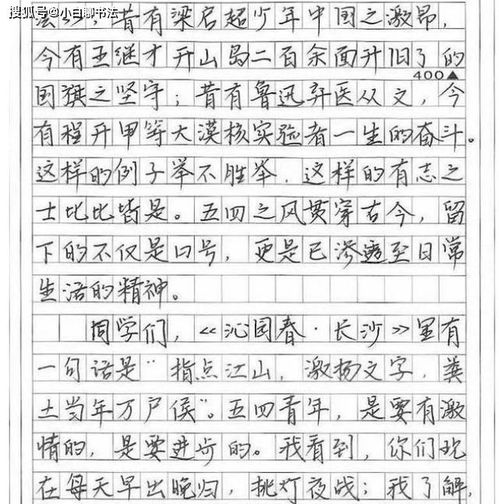 搜狐号@小白聊书法
昔有梁启超少年中国之激昂，
今有王继才开山岛二百余面升旧了的
400▲
国旗之坚守；昔有鲁迅弃医从文，今
有程开甲等大漠核实验者一生的奋斗。
这样的例子举不胜举，这样的有志之
士比比皆是。五四之风贯穿古今，留
下的不仅是口号，更是已渗透至日常
生活的精神。
同学们，《沁园春·长沙》里有
一句话是“指点江山，激扬文字，粪
土当年万户侯”。五四青年，是要有激
情的，是要进步的。我看到，你们现
在每天早出晚归，挑灯夜战；我了解，